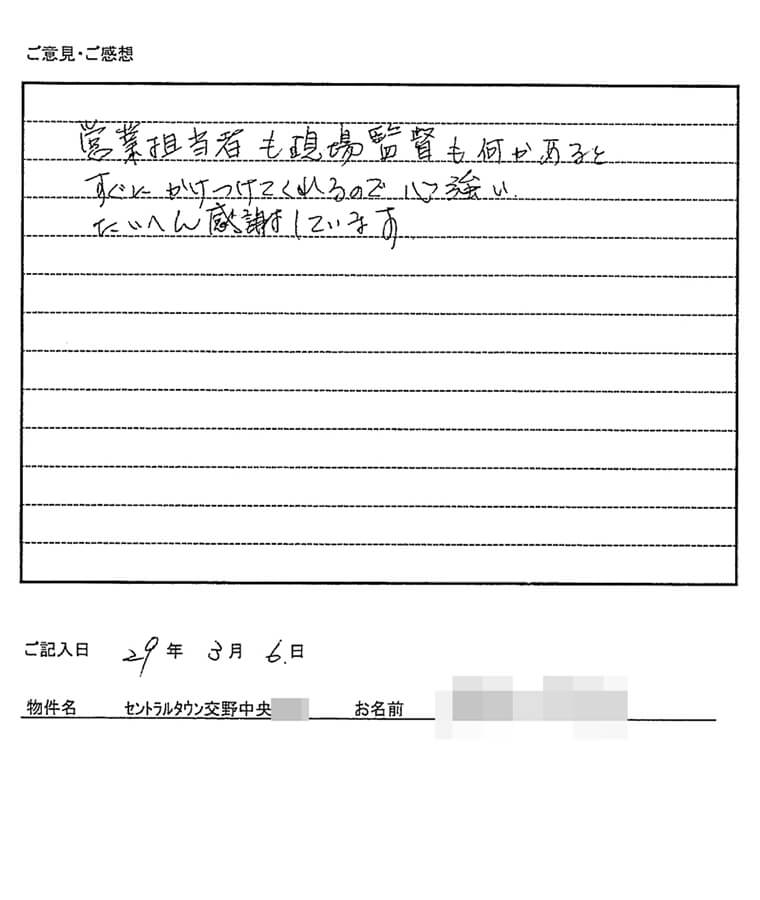 ご意見・ご感想
営業担当者も現場監督も何かあると
すぐに かけつけてくれるので 心強い.
たいへん感謝しています.
ご記入日 29年 3月 6.日
物件名 セントラルタウン交野中央 お名前